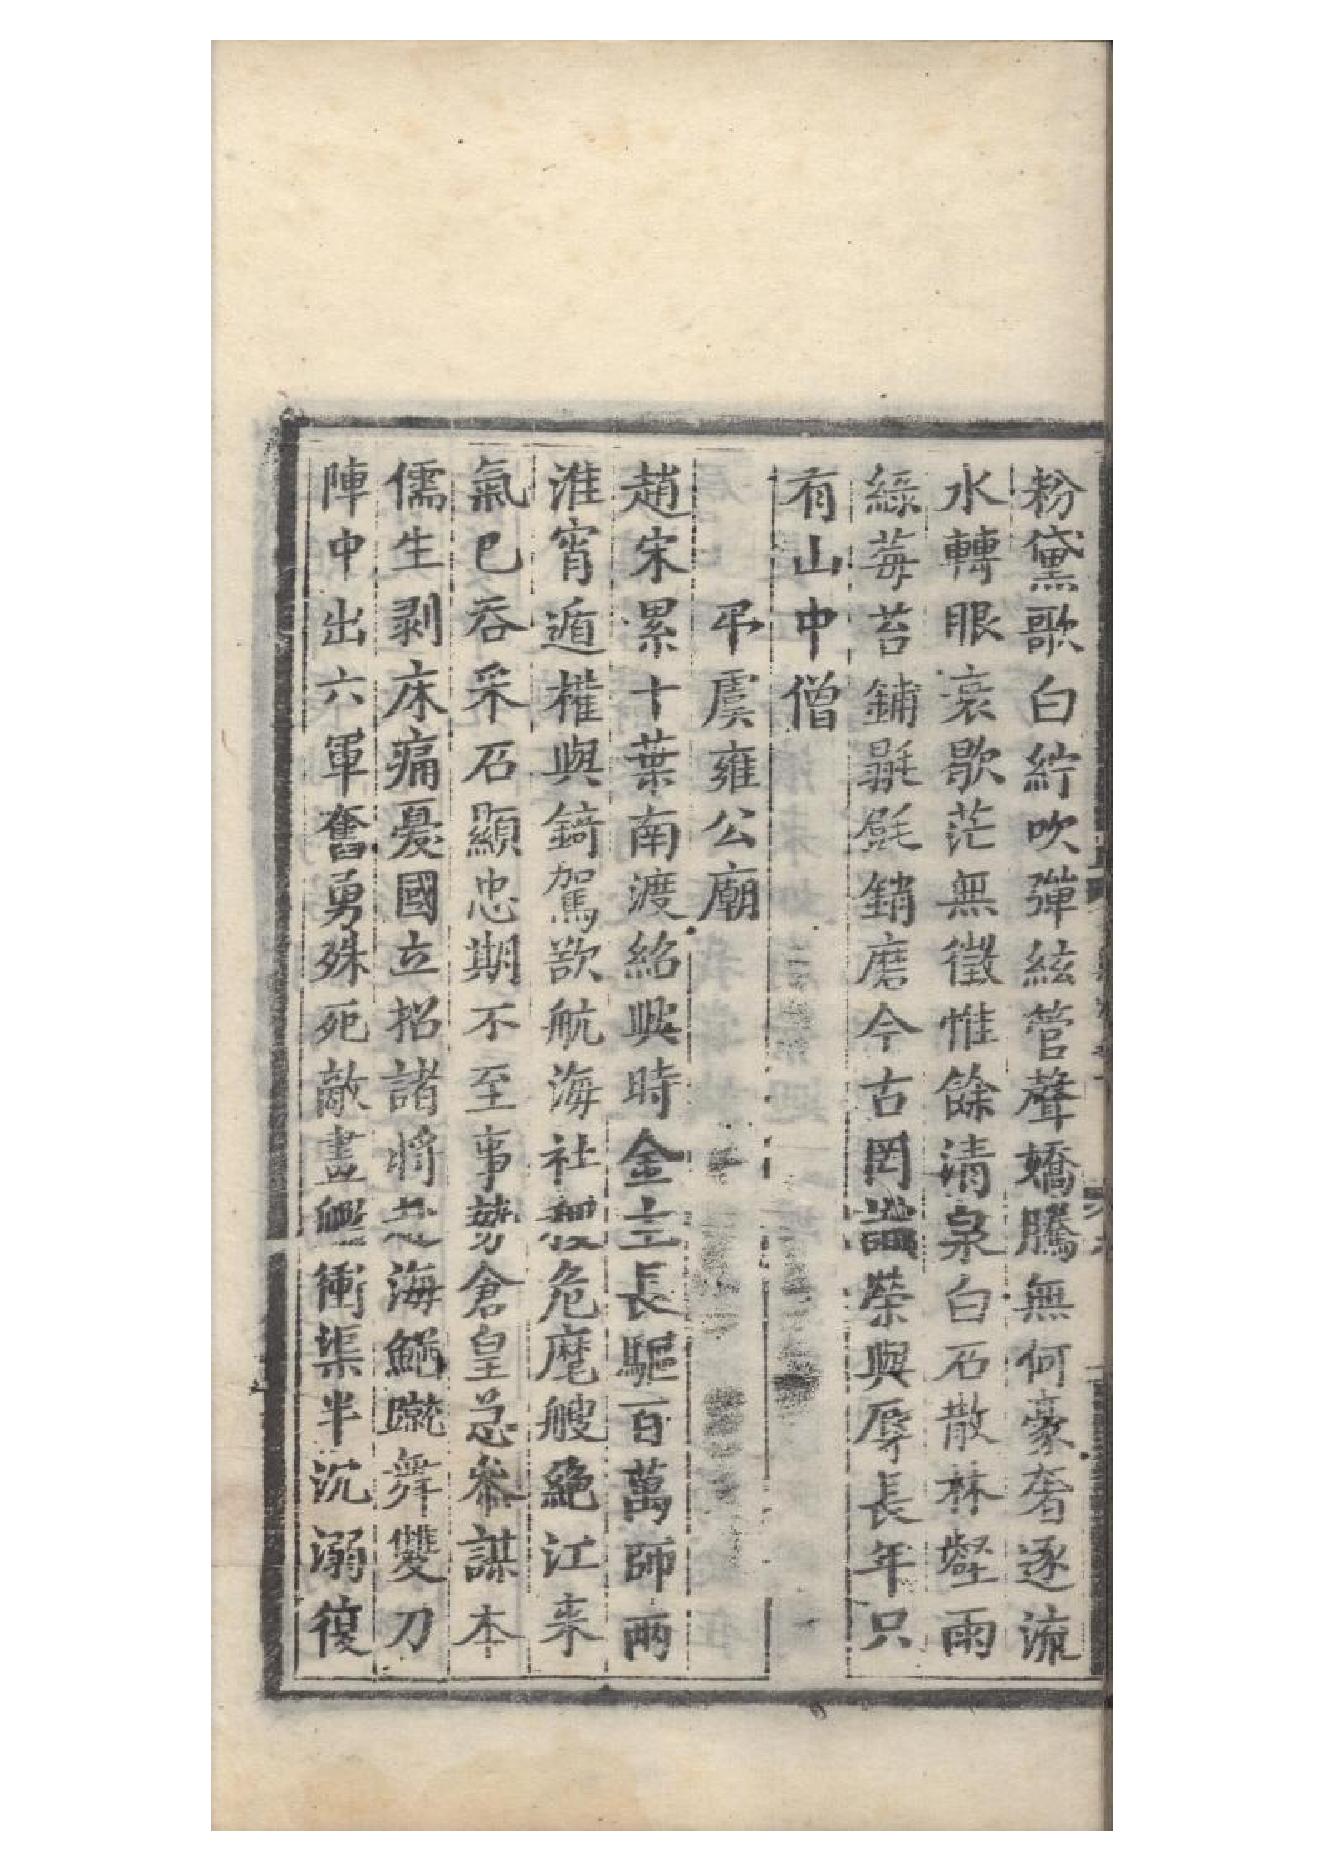 粉黛歌白紵吹彈絃管聲嬌騰無何豪奢逐流
水轉眼衰歇茫無徵惟餘清泉白石散林壑雨
綠莓苔鋪毾㲪銷磨今古罔榮與辱長年只
有山中僧
弔虞雍公廟
趙宋累十葉南渡紹興時金主長驅百萬師兩
淮宵遁權與錡駕欲航海社稷危麾艘絕江来
氣已吞采石顯忠期不至事勢倉皇急參謀本
儒生剥床痛憂國立招諸將起海鰌蹴舞雙刀
陣中出六軍奮勇殊死敵畫衝渠半沉溺復